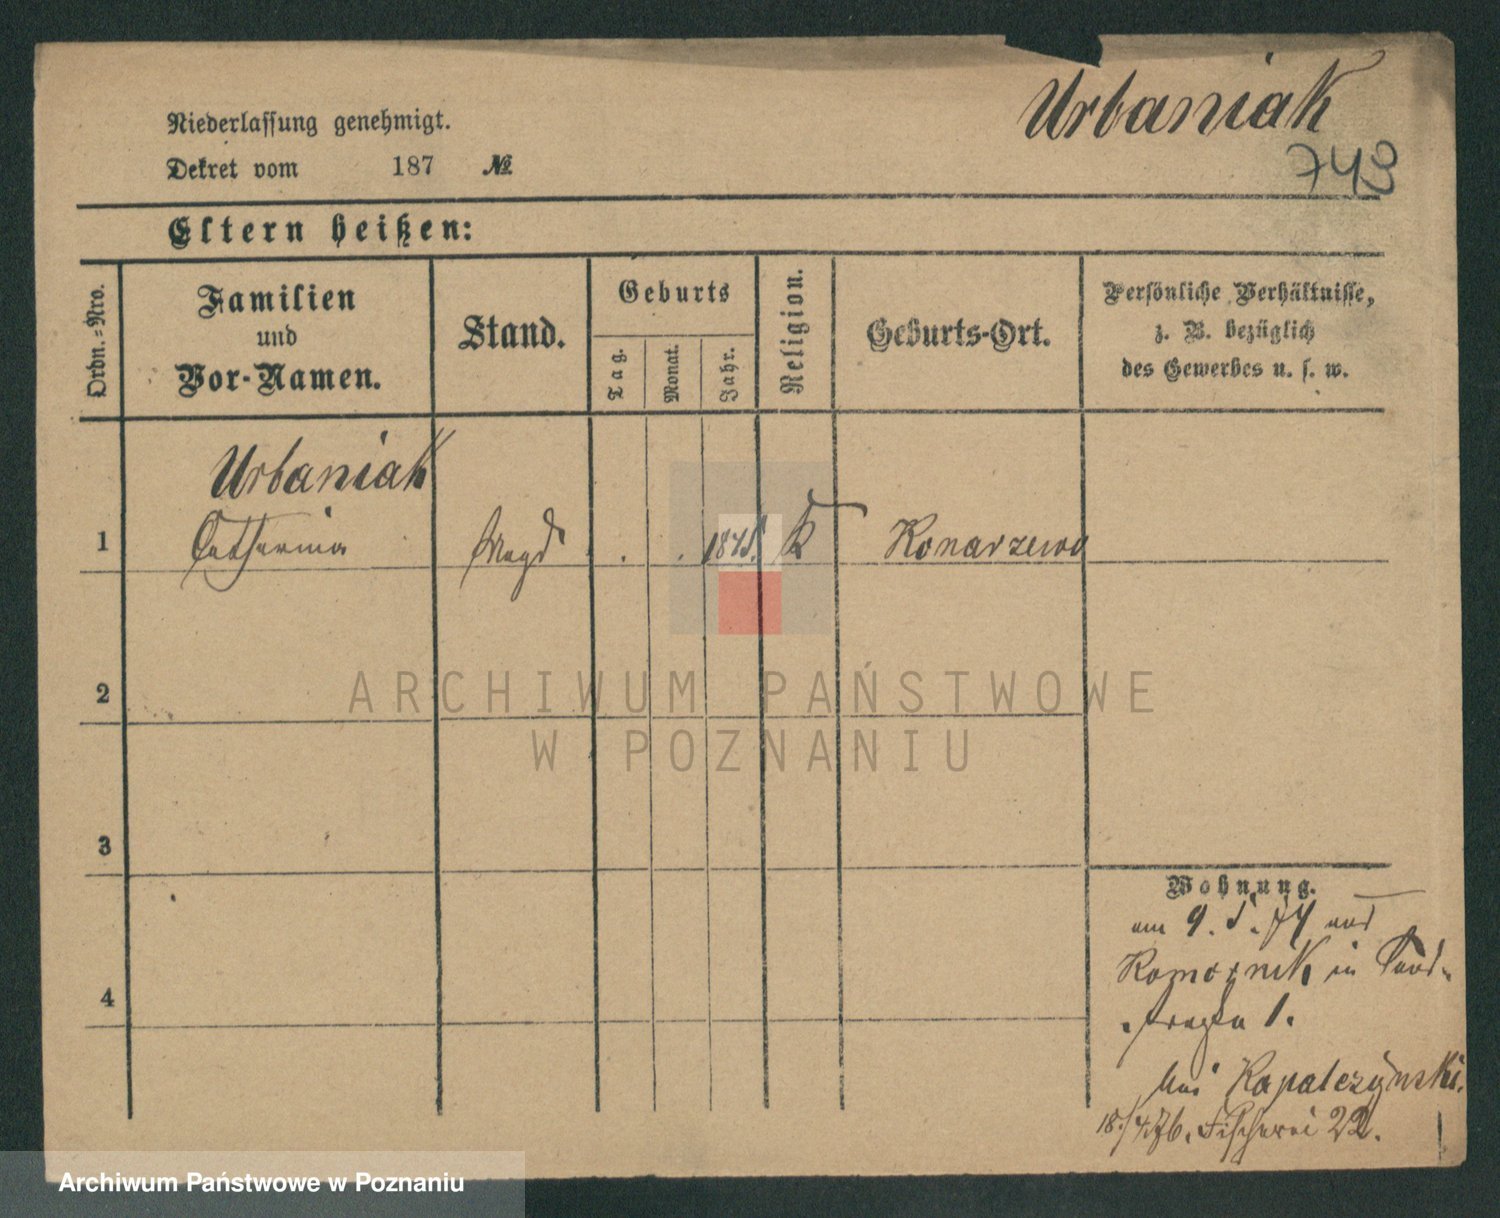 Urbaniak
743
Niederlassung genehmigt.
Dekret vom 187 №
Eltern heißen:
Ordn.=Nro.
Familien und Vor-Namen.
Stand.
Geburts
Tag.
Monat.
Jahr.
Religion.
Geburts-Ort.
Persönliche Verhältnisse,
z. B. bezüglich
des Gewerbes u. s. w.
Urbaniak
1 Catharina Magd . . K Konarzewo
2
ARCHIWUM PAŃSTWOWE
W POZNANIU
3
Wohnung.
am 9. 5. 74 aus
Komornik in
1.
bei Kapalczynski.
18/4 76. Fischerei 22.
4
Archiwum Państwowe w Poznaniu